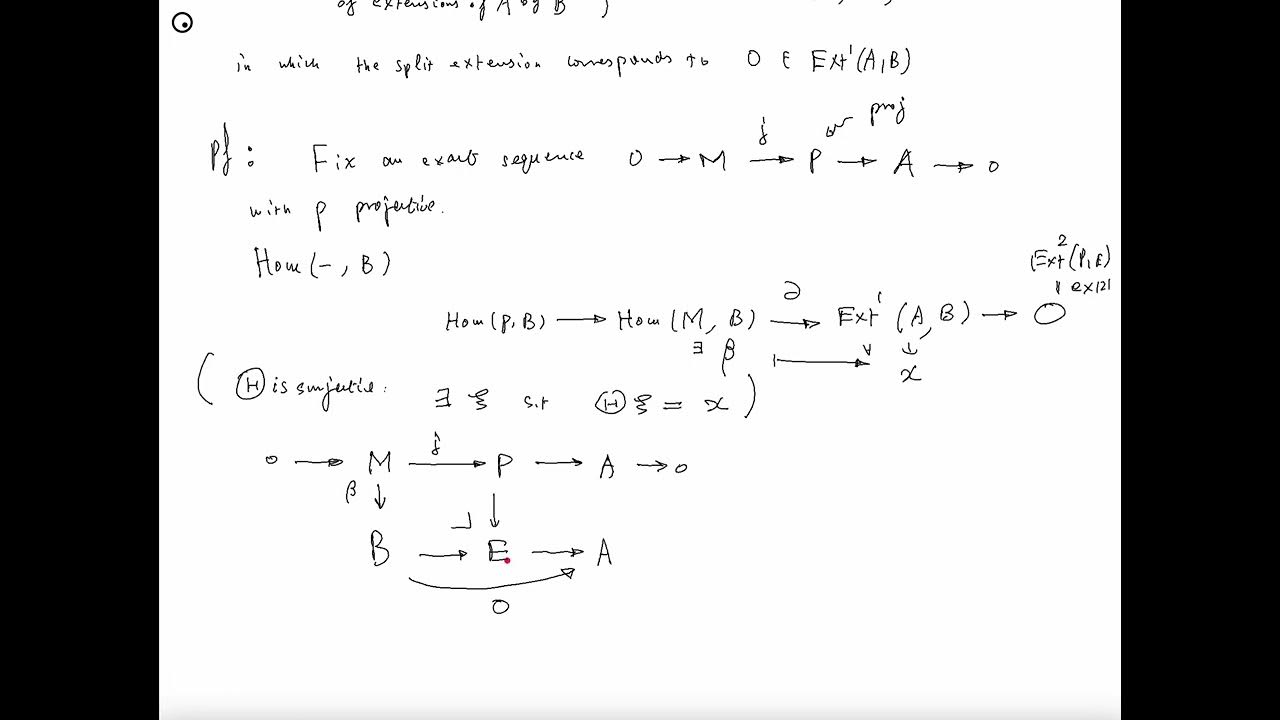 of extensions of A by B }
in which the split extension corresponds to 0 ∈ Ext¹(A,B)
Pf: Fix an exact sequence 0 → M →j P → A → 0
proj
with P projective.
Hom(-, B)
Ext²(P,B)
Hom(P,B) → Hom(M, B) →∂ Ext¹(A, B) → 0
∃ β ↦ x
( Ⓗ is surjective: ∃ ξ s.t Ⓗ ξ = x )
0 → M →j P → A → 0
β ↓ ↓
B → E → A
0